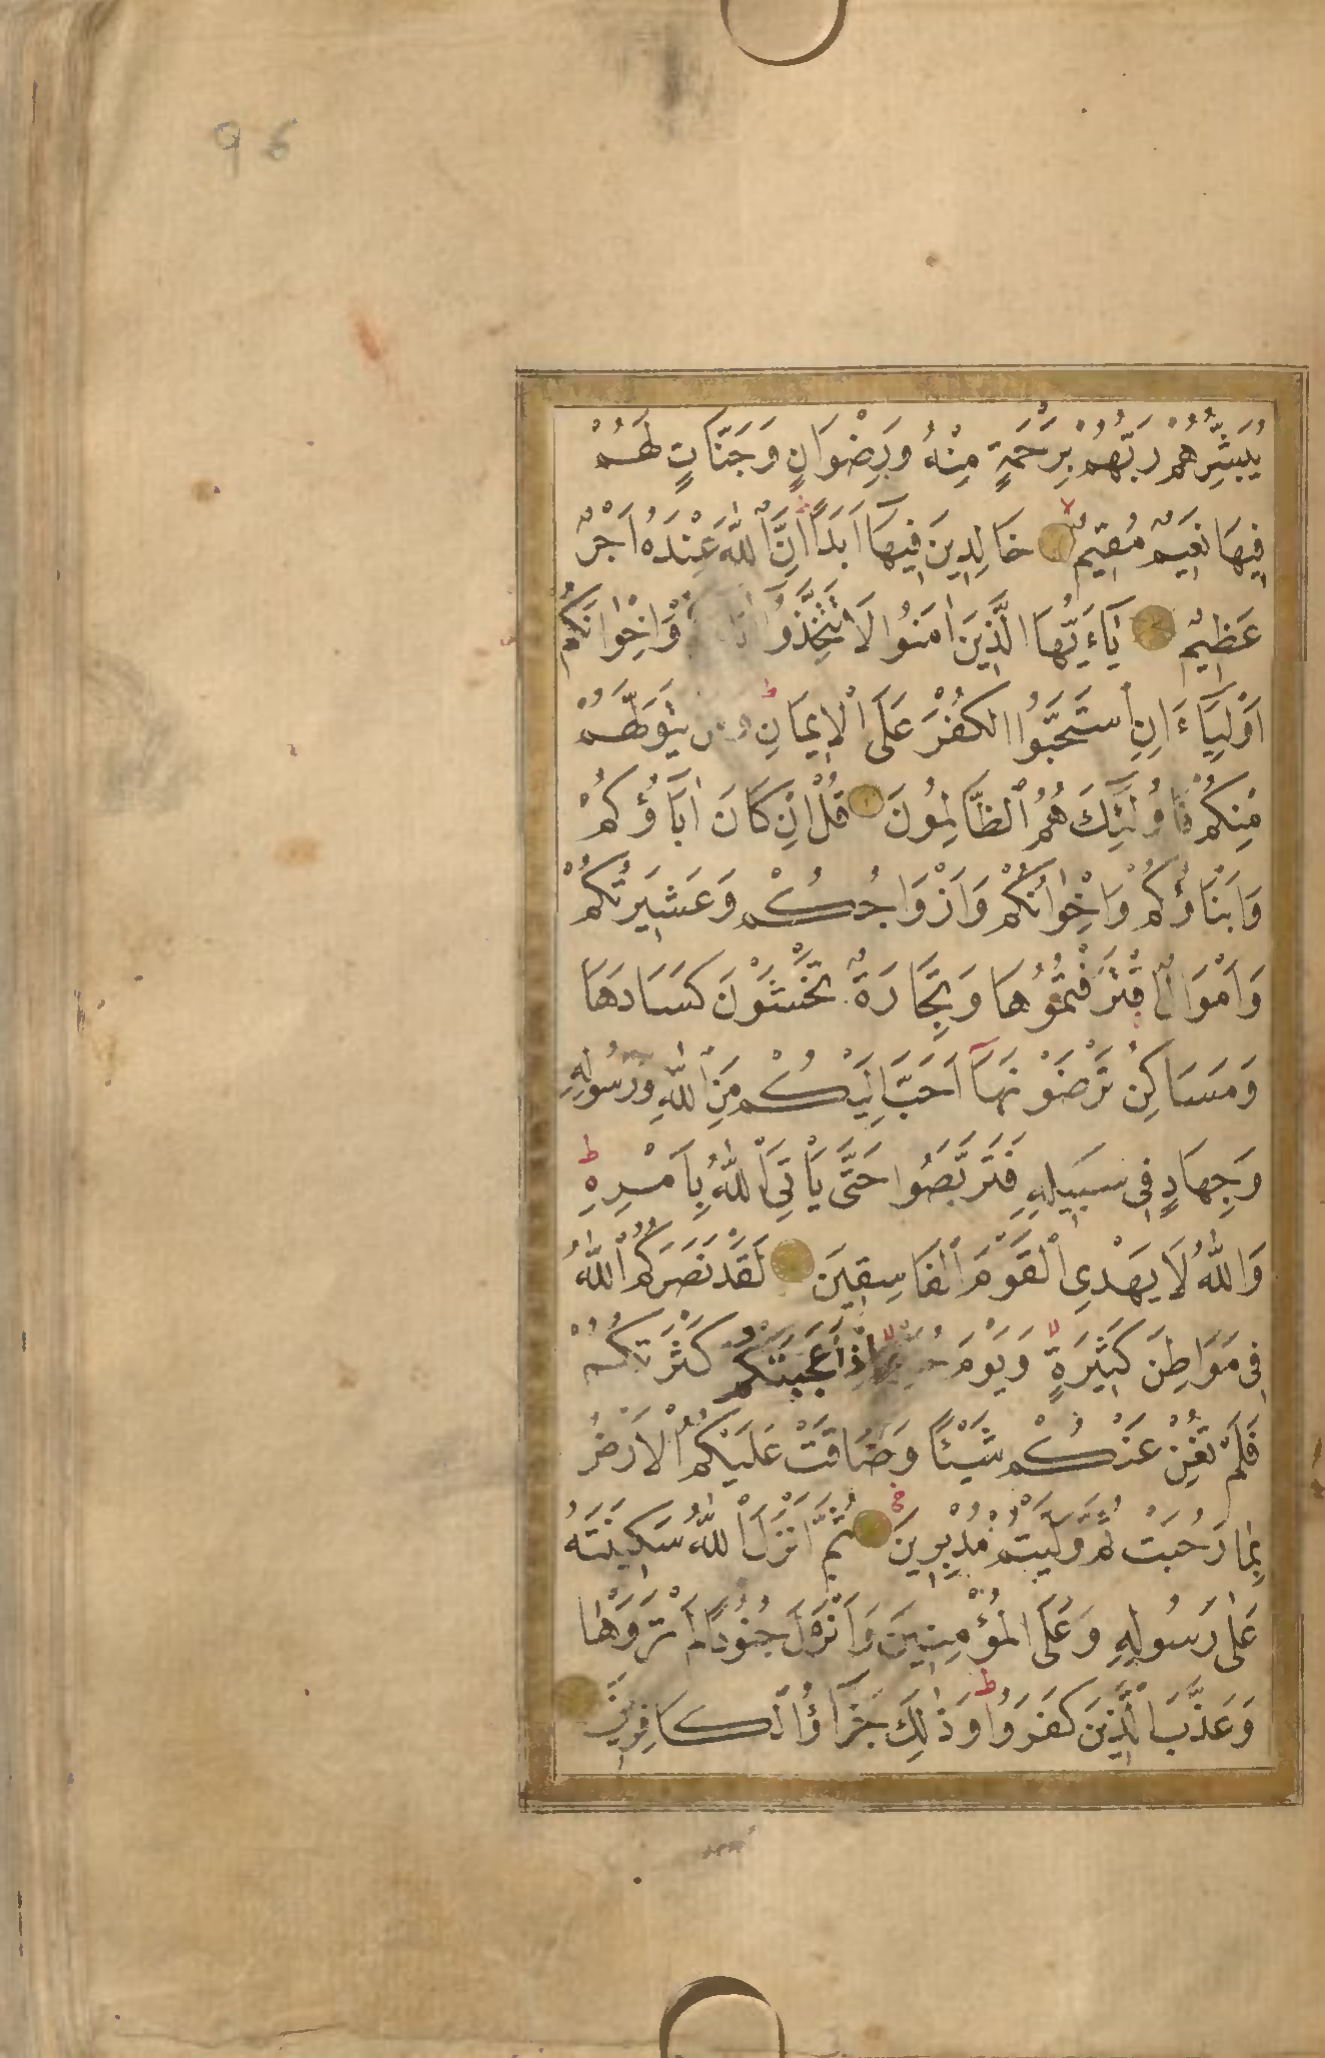 96
يُبَشِّرُهُمْ رَبُّهُمْ بِرَحْمَةٍ مِنْهُ وَرِضْوَانٍ وَجَنَّاتٍ لَهُمْ
فِيهَا نَعِيمٌ مُقِيمٌ خَالِدِينَ فِيهَا أَبَدًا اِنَّ اللّٰهَ عِنْدَهُ اَجْرٌ
عَظِيمٌ يَٓاءَيُّهَا الَّذِينَ اٰمَنُوا لَا تَتَّخِذُوا وَاِخْوَانَكُمْ
اَوْلِيَٓاءَ اِنِ اسْتَحَبُّوا الْكُفْرَ عَلَى الْاِيمَانِ يَتَوَلَّهُمْ
مِنْكُمْ فَاُولٰٓئِكَ هُمُ الظَّالِمُونَ قُلْ اِنْ كَانَ اٰبَٓاؤُكُمْ
وَاَبْنَاؤُكُمْ وَاِخْوَانُكُمْ وَاَزْوَاجُكُمْ وَعَشِيرَتُكُمْ
وَاَمْوَالٌ اقْتَرَفْتُمُوهَا وَتِجَارَةٌ تَخْشَوْنَ كَسَادَهَا
وَمَسَاكِنُ تَرْضَوْنَهَٓا اَحَبَّ اِلَيْكُمْ مِنَ اللّٰهِ وَرَسُولِهِ
وَجِهَادٍ فِي سَبِيلِهِ فَتَرَبَّصُوا حَتَّى يَاْتِيَ اللّٰهُ بِاَمْرِهِ
وَاللّٰهُ لَا يَهْدِي الْقَوْمَ الْفَاسِقِينَ لَقَدْ نَصَرَكُمُ اللّٰهُ
فِي مَوَاطِنَ كَثِيرَةٍ وَيَوْمَ حُنَيْنٍ اِذْ اَعْجَبَتْكُمْ كَثْرَتُكُمْ
فَلَمْ تُغْنِ عَنْكُمْ شَيْئًا وَضَاقَتْ عَلَيْكُمُ الْاَرْضُ
بِمَا رَحُبَتْ ثُمَّ وَلَّيْتُمْ مُدْبِرِينَ ثُمَّ اَنْزَلَ اللّٰهُ سَكِينَتَهُ
عَلٰى رَسُولِهِ وَعَلَى الْمُؤْمِنِينَ وَاَنْزَلَ جُنُودًا لَمْ تَرَوْهَا
وَعَذَّبَ الَّذِينَ كَفَرُوا وَذٰلِكَ جَزَٓاؤُ الْكَافِرِينَ